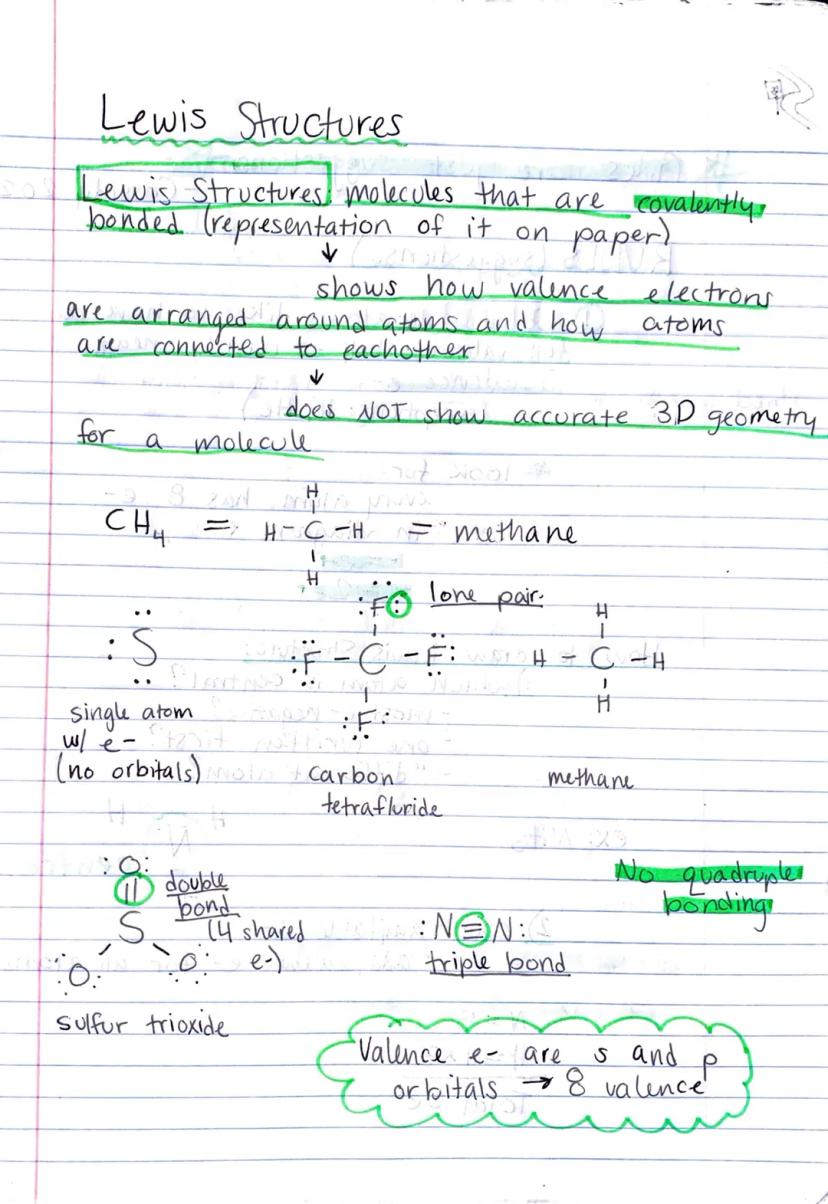 Lewis Structures
Lewis Structures: molecules that are covalently
bonded (representation of it on paper)
↓
shows how valence electrons
are arranged around atoms and how atoms
are connected to eachother
↓
does NOT show accurate 3D geometry
for a molecule
H
CH₄ = H-C-H = methane
H
:F: lone pair
:S :F-C-F: H-C-H
H
H
:F:
single atom
w/ e-
(no orbitals)
carbon
tetrafluride
methane
:O:
double
bond
(4 shared
e-)
S
:O: :O:
sulfur trioxide
:N≡N:
triple bond
No quadruple
bonding
Valence e- are s and p
orbitals → 8 valence